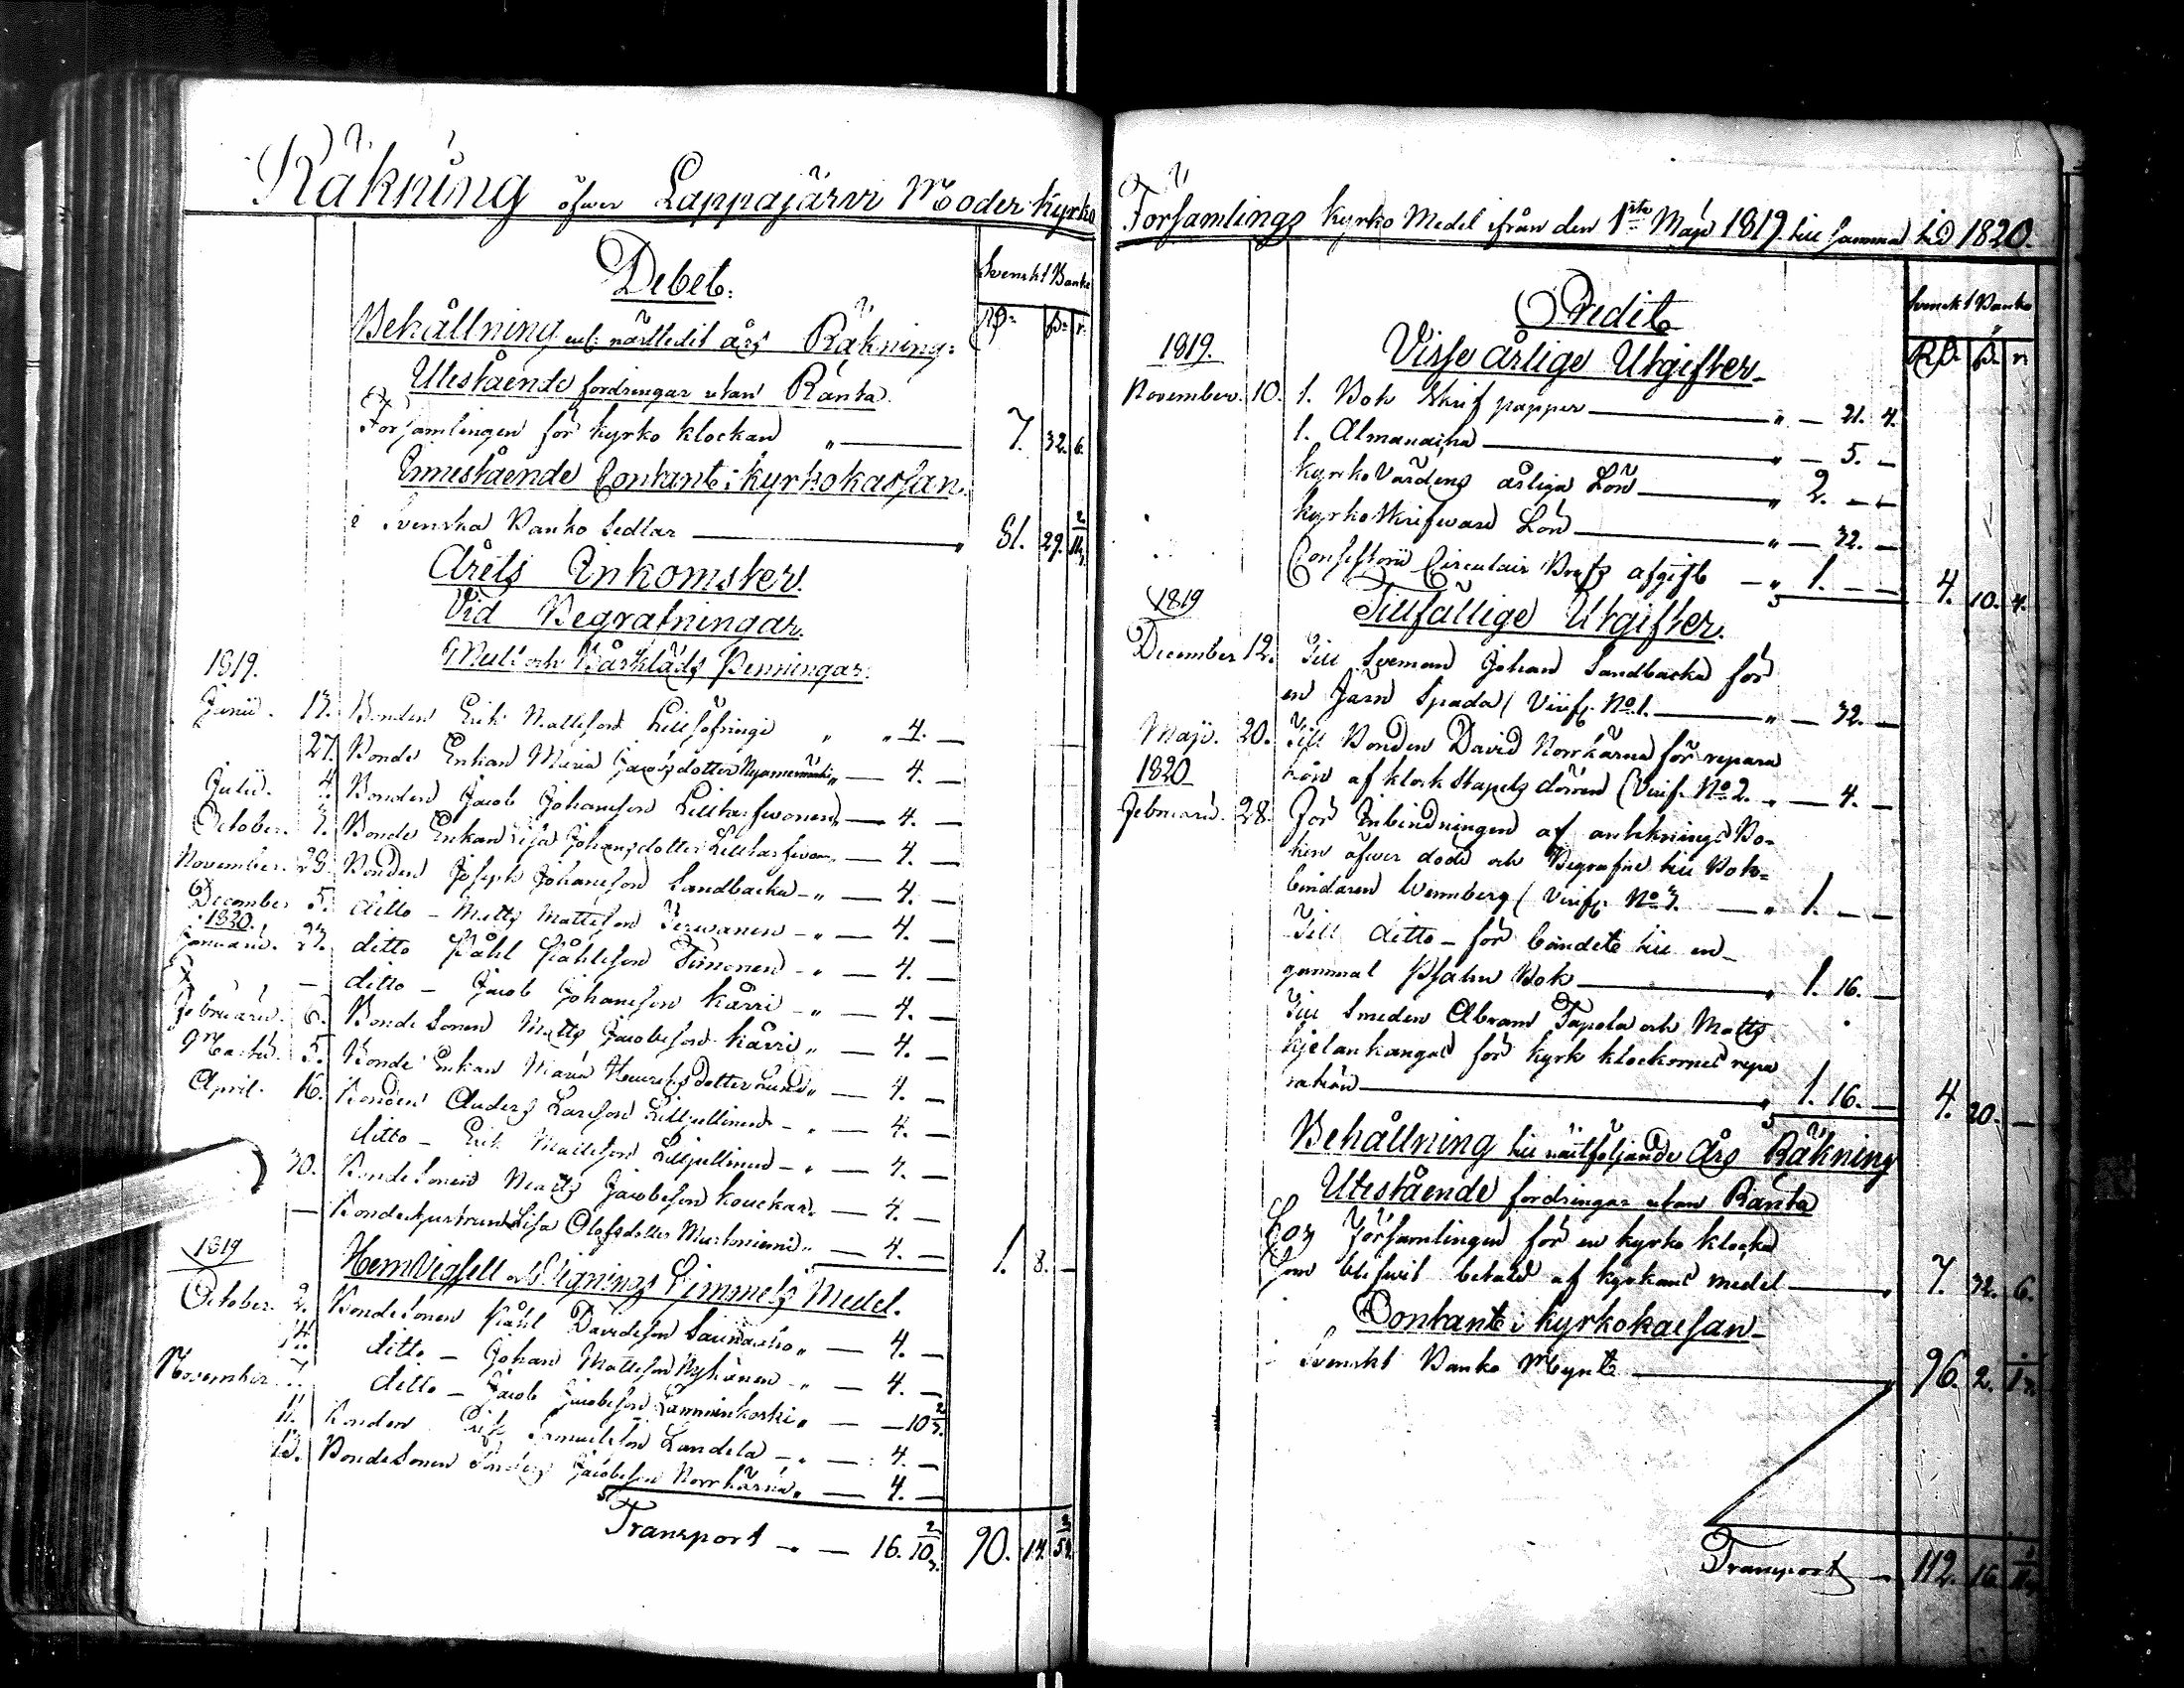 Räkning öfwer Lappajärvi Moder Kyrko
Debet.
Svenskt Banko
Rd. ß. r.
Behållning enl: nästledit års Räkning:
Utestående fordringar utan Ränta.
Församlingen för Kyrko Klockan " — 7. 32. 6.
Innestående Contant i Kyrkokassan.
i Svenska Banko Sedlar — " 81. 29.
Årets Inkomster.
Vid Begrafningar.
Mull och Bårkläds Penningar.
1819.
Junii. 13. Bonden Erik Mattsson " " 4. —
27. Bonde Enkan Maria Jacobsdotter — 4. —
Julii. 4. Bonden Jacob Johansson — 4. —
October. 3. Bonde Enkan Lisa Johansdotter — 4. —
November. 28. Bonden Joseph Johansson Sandbacka — " — 4. —
December 5. ditto — Matts Mattsson — " — 4. —
1820.
Januarii. 23. ditto Påhl Påhlsson Timonen — " — 4. —
— ditto — Jacob Johansson Kärri — " — 4. —
Februarii. 6. Bonde Sonen Matts Jacobsson Kärri " — 4. —
Martii. 5. Bonde Enkan Maria Henricsdotter Lund " — 4. —
April. 16. Bonden Anders Larsson — " — 4. —
ditto — Erik Mattsson — " — 4. —
30. Bonde Sonen Matts Jacobsson — 4. —
— Bonde hustrun Lisa Olofsdotter " — 4. — 1. 8. —
1819
Hem Vigsell Vignings Pimmels Medel.
October. 2. Bonde Sonen Påhl Davidsson " — 4. —
ditto — Johan Mattsson Nykänen — " — 4. —
November 7. ditto — Jacob Jacobsson Lamminkoski " — — 10 2/3.
11. Bonden Erik Samuelsson Landela — " — 4. —
13. Bonde Sonen Anders Jacobsson Norrkärna " — 4. —
Transport — " — 16. 10 2/3. 90. 14.
Församlings Kyrko Medel ifrån den 1ste Maji 1819. till samma tid 1820.
Credit
Svenskt Banko
Rd. ß. r
Visse årlige Utgifter
1819.
November. 10. 1. Bok Skrif papper — " — 21. 4.
1. Almanacha — " — 5. —
Kyrko Vardens årliga Lön — " 2. — —
Kyrko Skrifware Lön — " — 32. —
Consistorii Circulair Brefs afgift — " 1. — — 4. 10. 4.
1819
Tillfällige Utgifter.
December 12. Till Johan Sandbacka för
en Järn Spada (Virif. No 1. — " — 32. —
Maji. 20. Till Bonden David Norrkärna för repara
tion af Klock Stapels dörren (Virif. No 2. " — 4. —
1820
Februarii. 28. För Inbindningen af antecknings Bo-
ken öfwer döde och Begrafne till Bok-
bindaren Wennberg (Virif. No 3. — " 1. — —
Till ditto — för bandet till en
gammal Psalm Bok — " 1. 16. —
Till Smeden Abram Tapola och Matts
Kjelankangas för Kyrk Klockornes repa
ration — " 1. 16. — 4. 20. —
Behållning till nästföljande Års Räkning
Utestående fordringar utan Ränta
Hos Församlingen för en Kyrko Klocka
som blifwit betald af Kyrkans medel — " 7. 32. 6.
Contant i Kyrkokassan
Svenskt Banko Mynt — " 96. 2.
Transport — 112. 16.